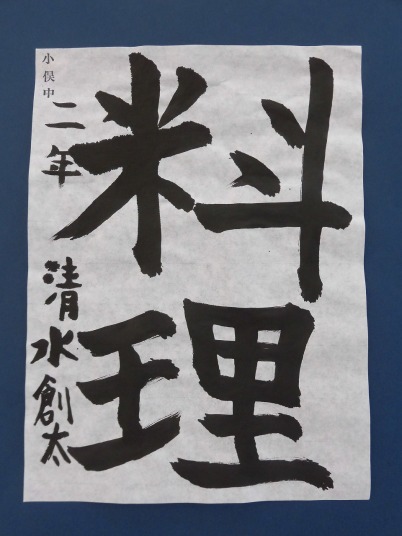 料理
小俣中
二年
清水創太